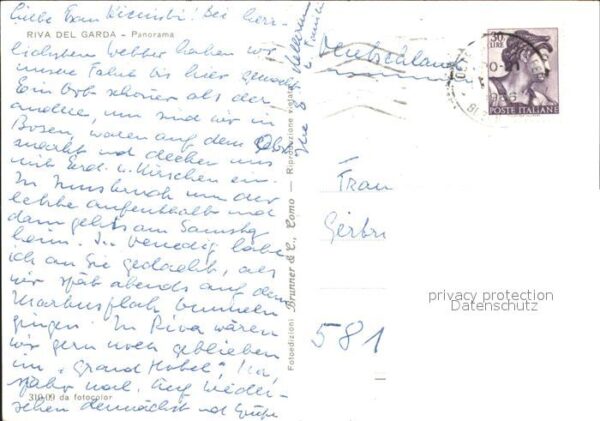 Liebe Frau Kisinski! Bei herr-
RIVA DEL GARDA - Panorama
lichstem Wetter haben wir
unsere Fahrt bis hier gemacht.
Ein Ort schöner als der
andere, nun sind wir in
Bozen, waren auf dem Obst-
markt und decken uns
mit Erdb. u. Kirschen ein.
In Innsbruck nun der
letzte Aufenthalt und
dann gehts am Samstag
heim. In Venedig habe
ich an Sie gedacht, als
wir spät abends auf dem
Markusplatz bummeln
gingen. In Riva wären
wir gern noch geblieben
im "Grand Hotel"! Na,
später mal. Auf Wieder-
319-09 da fotocolor
sehen demnächst und Grüße
Ihre
u. Familie
Fotoedizioni Brunner & C., Como — Riproduzione vietata
Deutschland
30 LIRE
POSTE ITALIANE
Frau
privacy protection
Datenschutz
581